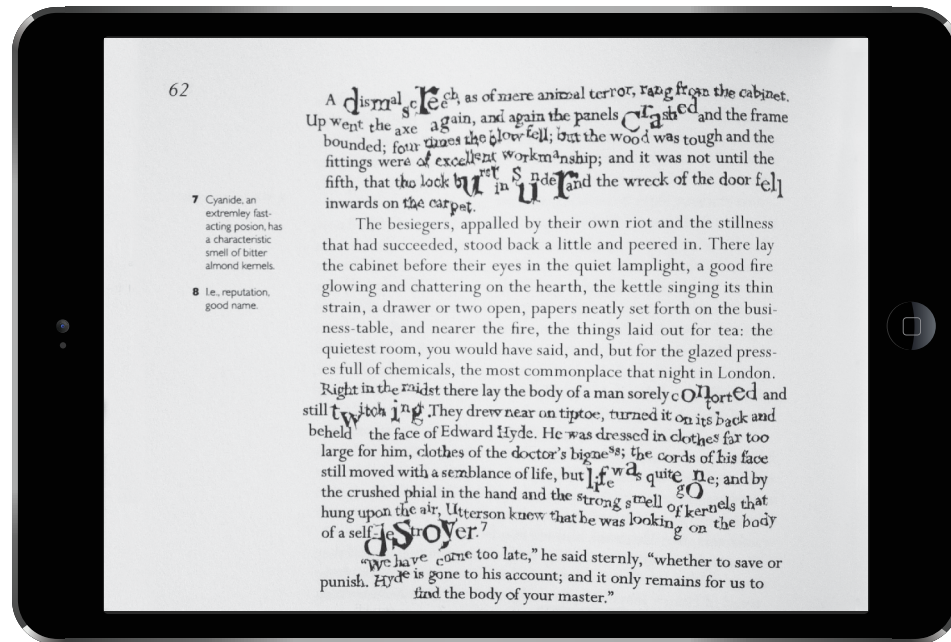 62
A dismal screech, as of mere animal terror, rang from the cabinet.
Up went the axe again, and again the panels crashed and the frame
bounded; four times the blow fell; but the wood was tough and the
fittings were of excellent workmanship; and it was not until the
fifth, that the lock burst in sunder and the wreck of the door fell
inwards on the carpet.
The besiegers, appalled by their own riot and the stillness
that had succeeded, stood back a little and peered in. There lay
the cabinet before their eyes in the quiet lamplight, a good fire
glowing and chattering on the hearth, the kettle singing its thin
strain, a drawer or two open, papers neatly set forth on the busi-
ness-table, and nearer the fire, the things laid out for tea: the
quietest room, you would have said, and, but for the glazed press-
es full of chemicals, the most commonplace that night in London.
Right in the midst there lay the body of a man sorely contorted and
still twitching. They drew near on tiptoe, turned it on its back and
beheld the face of Edward Hyde. He was dressed in clothes far too
large for him, clothes of the doctor's bigness; the cords of his face
still moved with a semblance of life, but life was quite gone; and by
the crushed phial in the hand and the strong smell of kernels that
hung upon the air, Utterson knew that he was looking on the body
of a self-destroyer.7
"We have come too late," he said sternly, "whether to save or
punish. Hyde is gone to his account; and it only remains for us to
find the body of your master."
7 Cyanide, an
extremley fast-
acting posion, has
a characteristic
smell of bitter
almond kernels.
8 I.e., reputation,
good name.